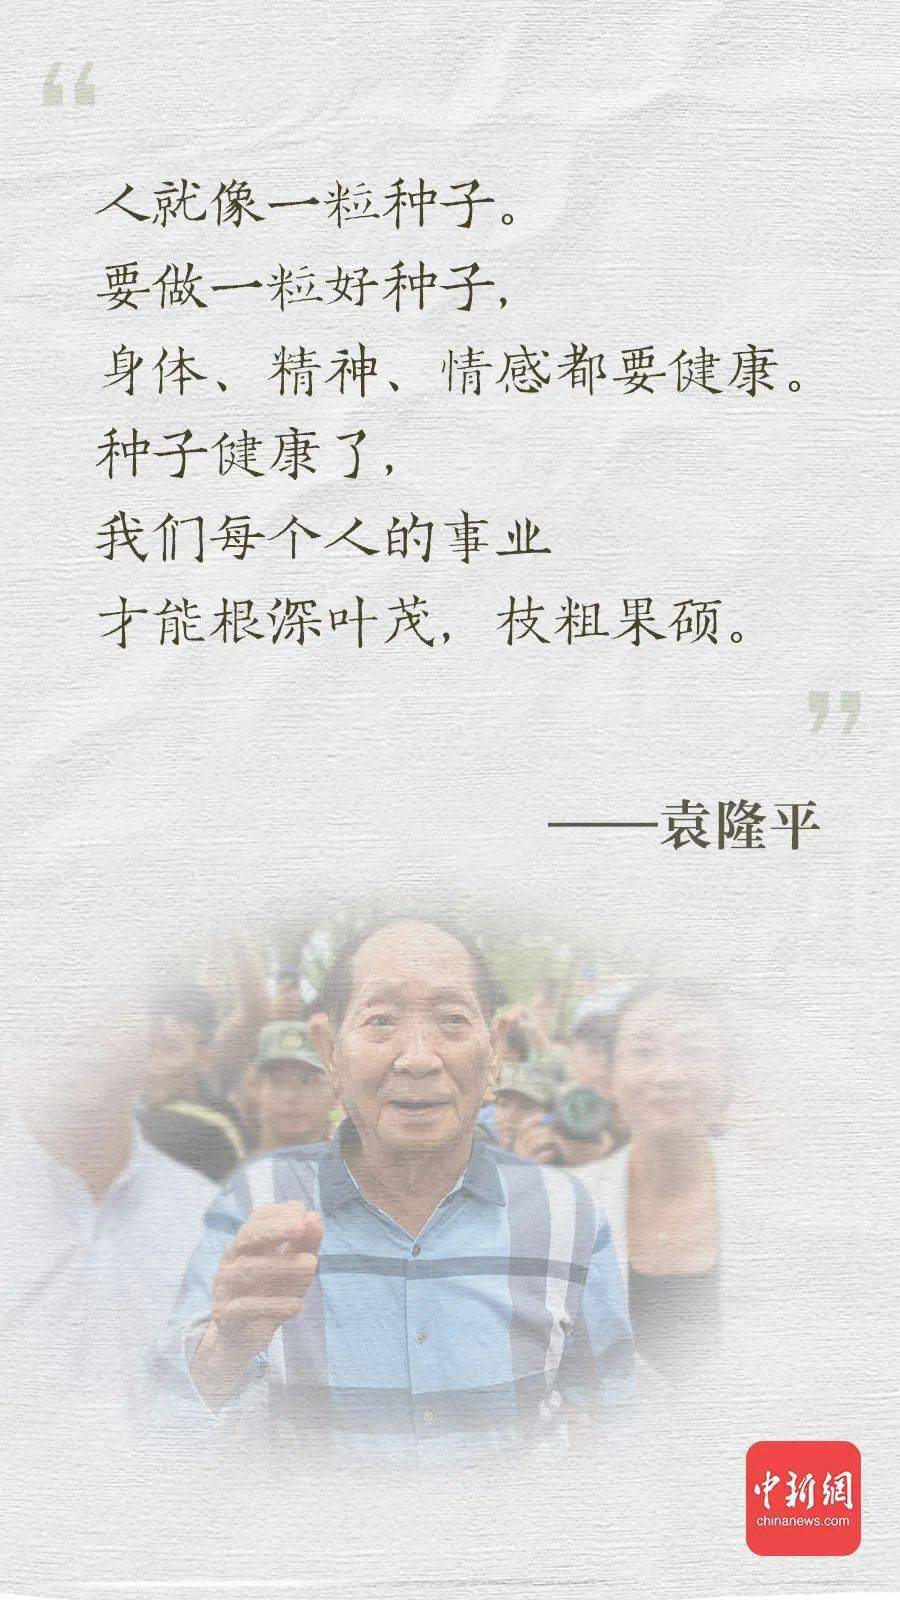 人就像一粒种子。
要做一粒好种子,
身体、精神、情感都要健康。
种子健康了,
我们每个人的事业
才能根深叶茂, 枝粗果硕。
——袁隆平
中新網
chinanews.com